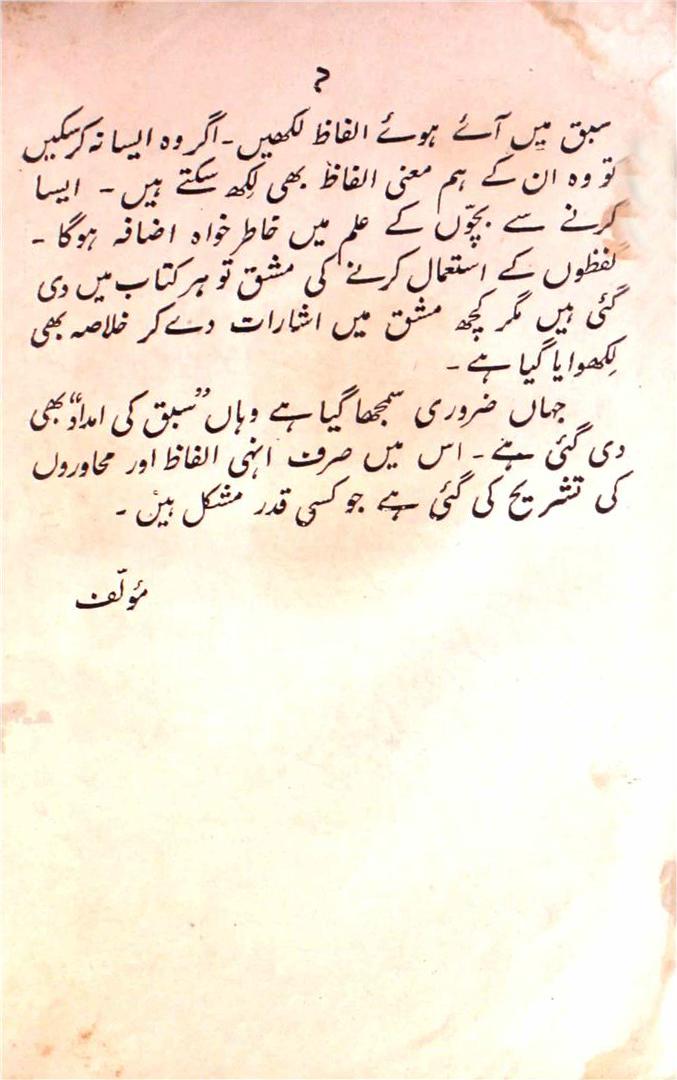 ۲
سبق میں آئے ہوئے الفاظ لکھیں۔ اگر وہ ایسا نہ کرسکیں
تو وہ ان کے ہم معنی الفاظ بھی لِکھ سکتے ہیں۔ ایسا
کرنے سے بچّوں کے علم میں خاطر خواہ اضافہ ہوگا۔
لفظوں کے استعمال کرنے کی مشق تو ہر کتاب میں دی
گئی ہیں مگر کچھ مشق میں اشارات دے کر خلاصہ بھی
لِکھوایا گیا ہے۔
جہاں ضروری سمجھا گیا ہے وہاں ”سبق کی امداد“ بھی
دی گئی ہے۔ اس میں صرف انہی الفاظ اور محاوروں
کی تشریح کی گئی ہے جو کسی قدر مشکل ہیں۔
مؤلّف